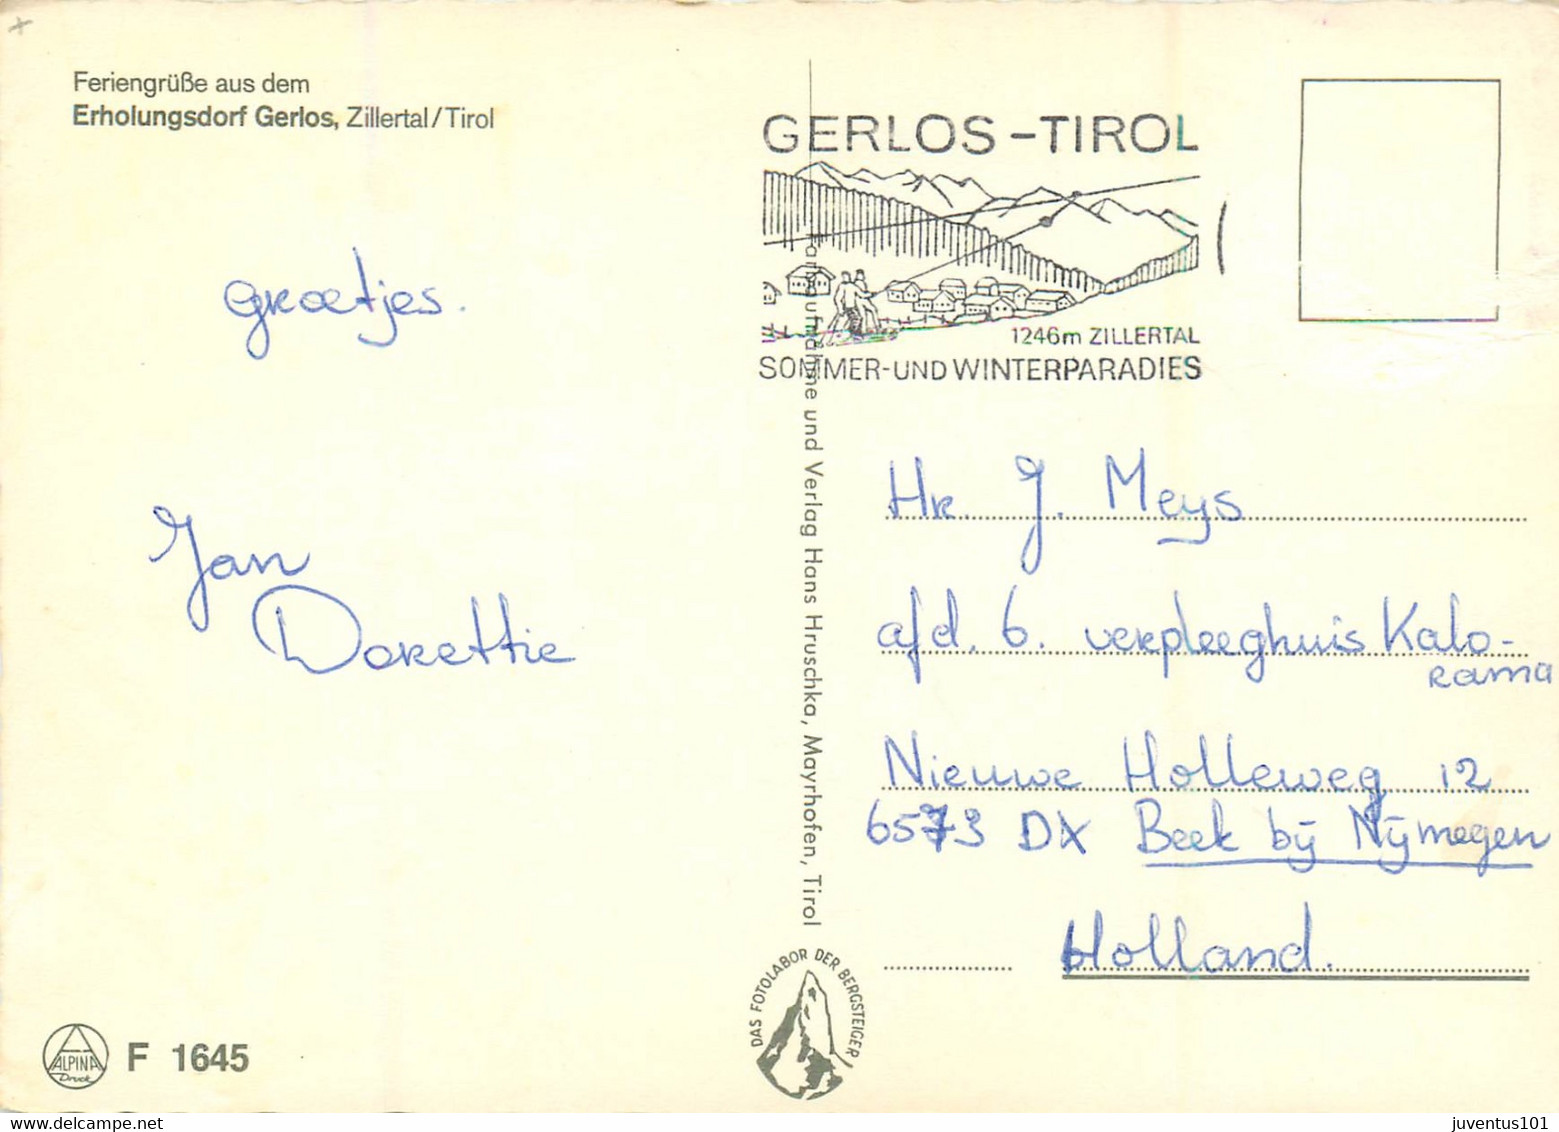 Feriengrüße aus dem
Erholungsdorf Gerlos, Zillertal/Tirol
groetjes.
Jan
Dorettie
ALPINA
Druck
F 1645
GERLOS-TIROL
1246m ZILLERTAL
SOMMER-UND WINTERPARADIES
Farbaufnahme und Verlag Hans Hruschka, Mayrhofen, Tirol
DAS FOTOLABOR DER BERGSTEIGER
Hr. J. Meys
afd. 6. verpleeghuis Kalo-
rama
Nieuwe Holleweg 12
6573 DX Beek bij Nijmegen
Holland.
juventus101